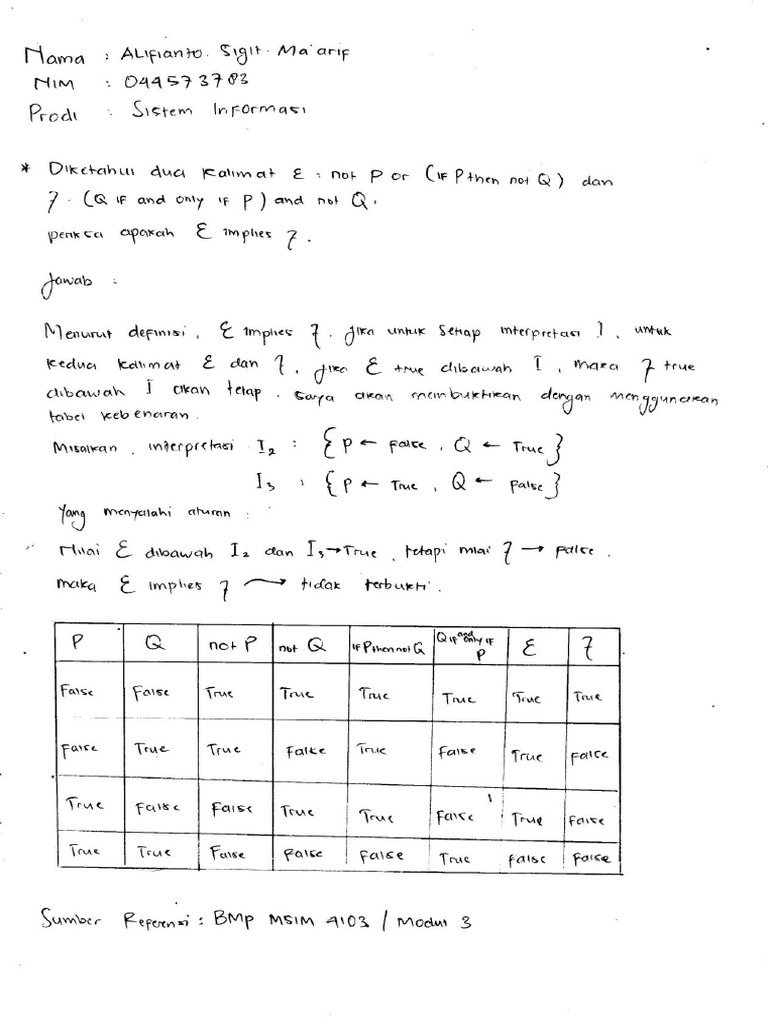 Nama : Alifianto. Sigit. Ma'arif
NIM : 044573783
Prodi : Sistem Informasi
* Diketahui dua kalimat ℰ : not P or (if P then not Q) dan
7. (Q if and only if P) and not Q.
periksa apakah ℰ implies 7.
Jawab :
Menurut definisi, ℰ implies 7. jika untuk setiap interpretasi I, untuk
kedua kalimat ℰ dan 7, jika ℰ true dibawah I, maka 7 true
dibawah I akan tetap. saya akan membuktikan dengan menggunakan
tabel kebenaran.
Misalkan, interpretasi I₂ : {P ← false, Q ← True}
I₃ : {P ← True, Q ← false}
Yang menyalahi aturan :
Nilai ℰ dibawah I₂ dan I₃ → True, tetapi nilai 7 → false.
maka ℰ implies 7 → tidak terbukti.
P Q not P not Q if P then not Q Q if and only if P ℰ 7
False False True True True True True True
False True True False True False True False
True False False True True False True False
True True False False False True False False
Sumber Referensi : BMP MSIM 4103 / Modul 3